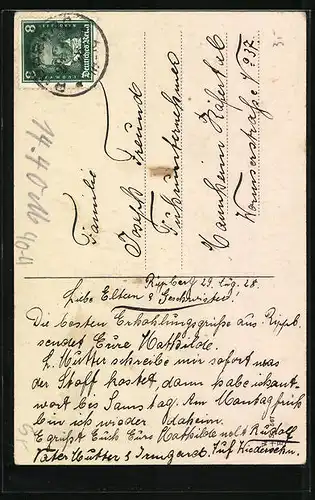 8 Deutsches Reich 8
Familie
Joseph Freund
Fuhrunternehmer
Mannheim Käfertal
Wormserstraße No 37.
Rippberg 29. Aug. 28.
Liebe Eltern & Geschwister!
Die besten Erhohlungsgrüße aus Rippb.
sendet Eure Mathilde.
L. Mutter schreibe mir sofort was
der Stoff kostet, dann habe ich ant-
wort bis Samstag. Am Montag früh
bin ich wieder daheim.
Es grüßt Euch Eure Mathilde nebst Rudolf
Vater Mutter & Irmgard. Auf Wiedersehn.